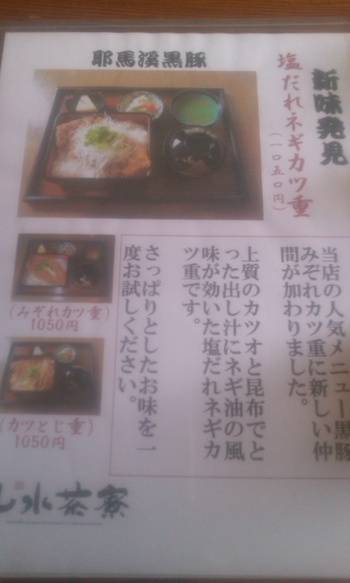 耶馬溪黒豚
新味発見
塩だれネギカツ重
(一〇五〇円)
当店の人気メニュー黒豚
みぞれカツ重に新しい仲
間が加わりました。
上質のカツオと昆布でと
った出し汁にネギ油の風
味が効いた塩だれネギカ
ツ重です。
さっぱりとしたお味を一
度お試しください。
(みぞれカツ重)
1050円
(カツとじ重)
1050円
山水茶寮